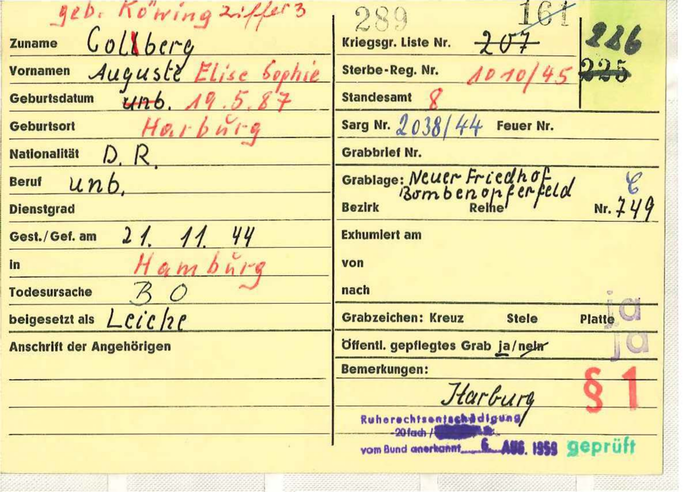 geb. Köwring Ziffer 3
Zuname Collberg
Vornamen Auguste Elise Sophie
Geburtsdatum unb. 19.5.87
Geburtsort Harburg
Nationalität D. R.
Beruf unb.
Dienstgrad
Gest./Gef. am 21. 11. 44
in Hamburg
Todesursache B O
beigesetzt als Leiche
Anschrift der Angehörigen
289 161
Kriegsgr. Liste Nr. 207 226
Sterbe-Reg. Nr. 1010/45 225
Standesamt 8
Sarg Nr. 2038/44 Feuer Nr.
Grabbrief Nr.
Grablage: Neuer Friedhof
Bombenopferfeld
Bezirk Reihe Nr. 749
Exhumiert am
von
nach
ja
Grabzeichen: Kreuz Stele Platte
ja
Öffentl. gepflegtes Grab ja/nein
Bemerkungen:
§ 1
Harburg
Ruherechtsentschädigung
-20fach /
vom Bund anerkannt 6. AUG. 1959 geprüft